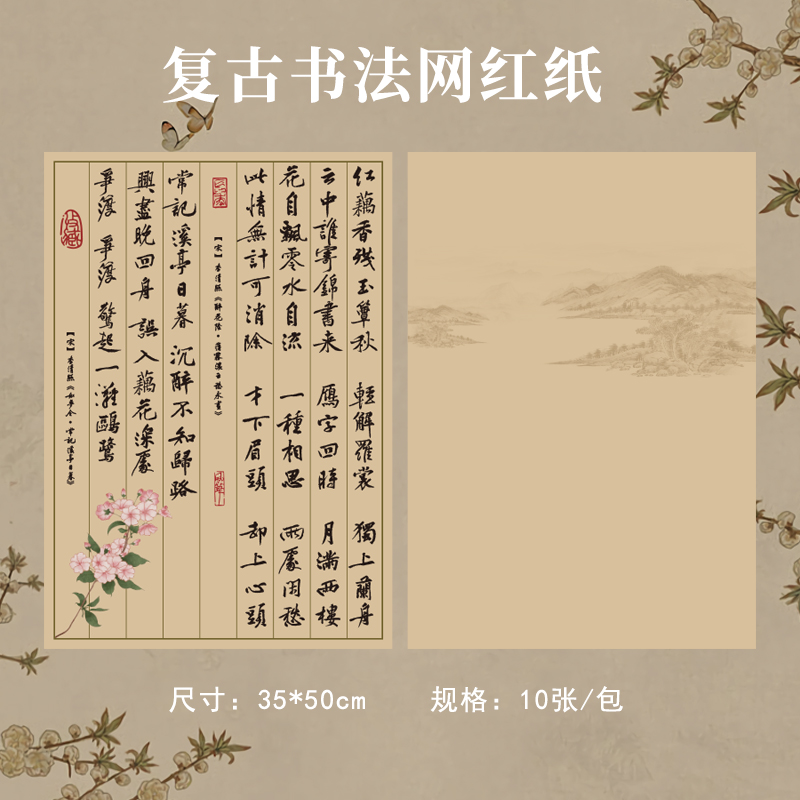 复古书法网红纸
红藕香残玉簟秋 輕解羅裳 獨上蘭舟
云中誰寄錦書来 鴈字回時 月滿西樓
花自飄零水自流 一種相思 兩處閑愁
此情無計可消除 才下眉頭 却上心頭
【宋】李清照《醉花陰·薄霧濃云愁永晝》
常記溪亭日暮 沉醉不知歸路
興盡晚回舟 誤入藕花深處
爭渡 爭渡 驚起一灘鷗鷺
【宋】李清照《如夢令·常記溪亭日暮》
尺寸：35*50cm 规格：10张/包